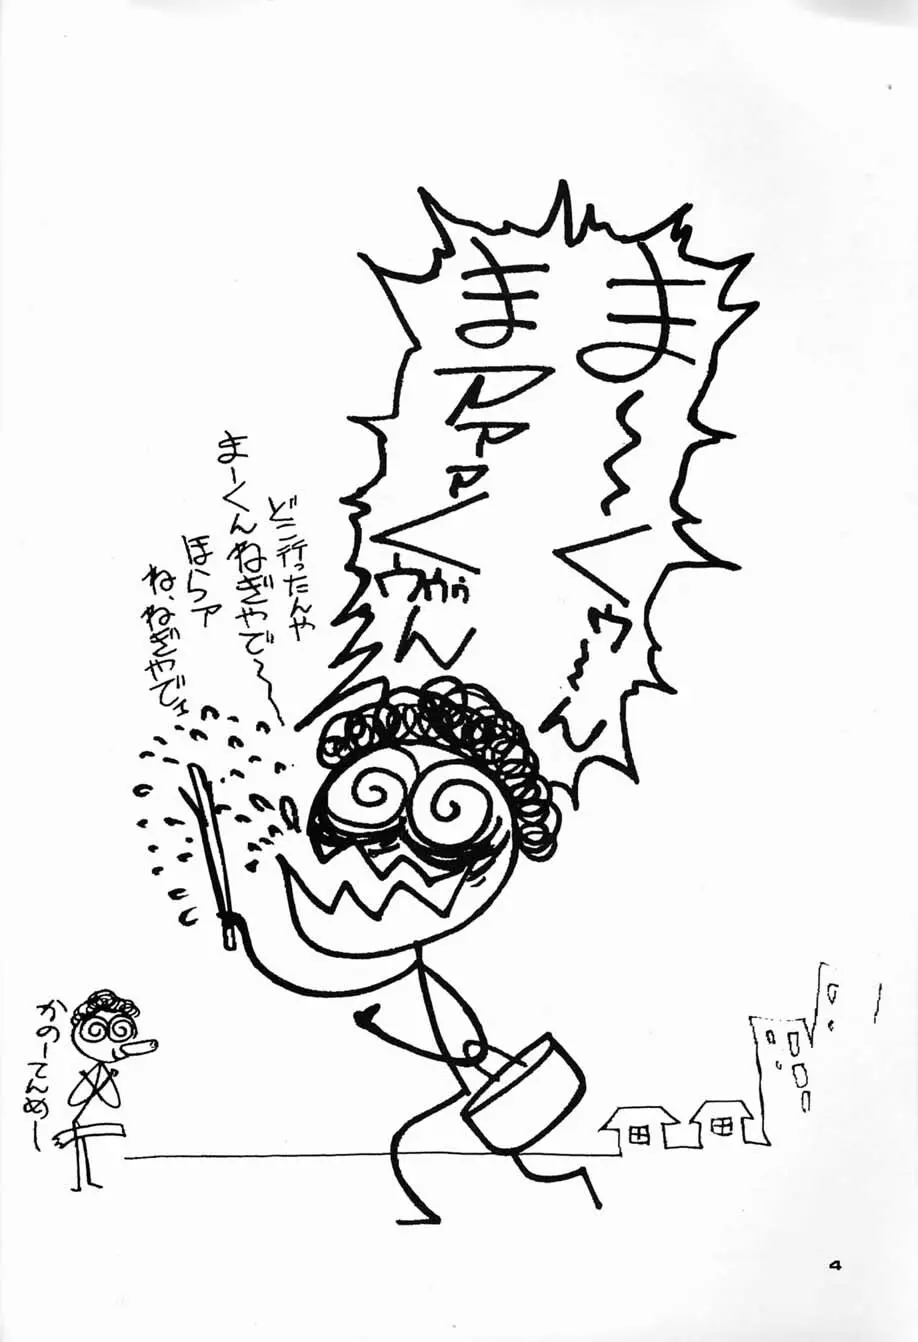 ま〜〜くゥ〜ん
まァァァくゥゥゥん
どこ行ったんや
まーくんねぎやで〜〜
ほらァ
ね、ねぎやでェ
かのーてんめー
4